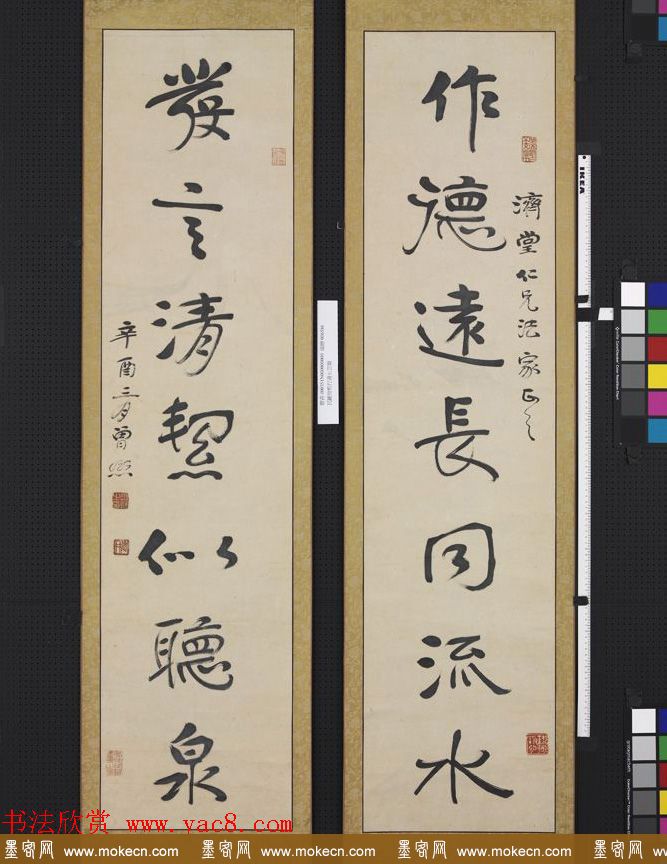 作德遠長同流水
濟堂仁兄法家正之
發言清絜似聽泉
辛酉二月曾熙
IKEA
书法欣赏 www.yac8.com
墨客网 www.mokecn.com 墨客网 www.mokecn.com 墨客网 www.mokecn.com 墨客网 www.mokecn.com